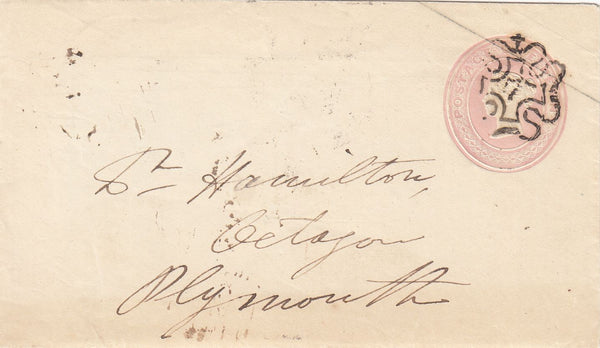 POSTAGE
Dr Hamilton,
Octagon
Plymouth